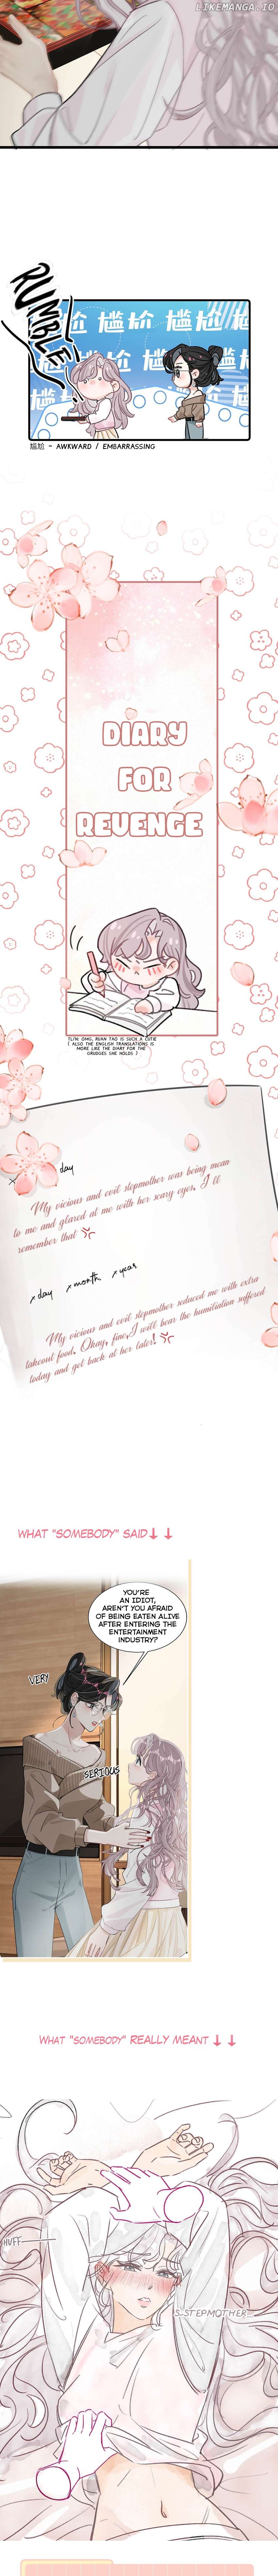 LIKEMANGA.IO
RUMBLE
尴尬 尴尬 尴尬 尴
尴尬 - AWKWARD / EMBARRASSING
DIARY
FOR
REVENGE
TL/N: OMG, RUAN TAO IS SUCH A CUTIE
( ALSO THE ENGLISH TRANSLATIONS IS
MORE LIKE THE DIARY FOR THE
GRUDGES SHE HOLDS )
day
My vicious and evil stepmother was being mean
to me and glared at me with her scary eyes. I'll
remember that
x day x month x year
My vicious and evil stepmother seduced me with extra
takeout food. Okay, fine, I will bear the humiliation suffered
today and get back at her later!
WHAT "SOMEBODY" SAID↓↓
YOU'RE
AN IDIOT,
AREN'T YOU AFRAID
OF BEING EATEN ALIVE
AFTER ENTERING THE
ENTERTAINMENT
INDUSTRY?
VERY
SERIOUS
WHAT "SOMEBODY" REALLY MEANT ↓↓
HUFF
S..STEPMOTHER...